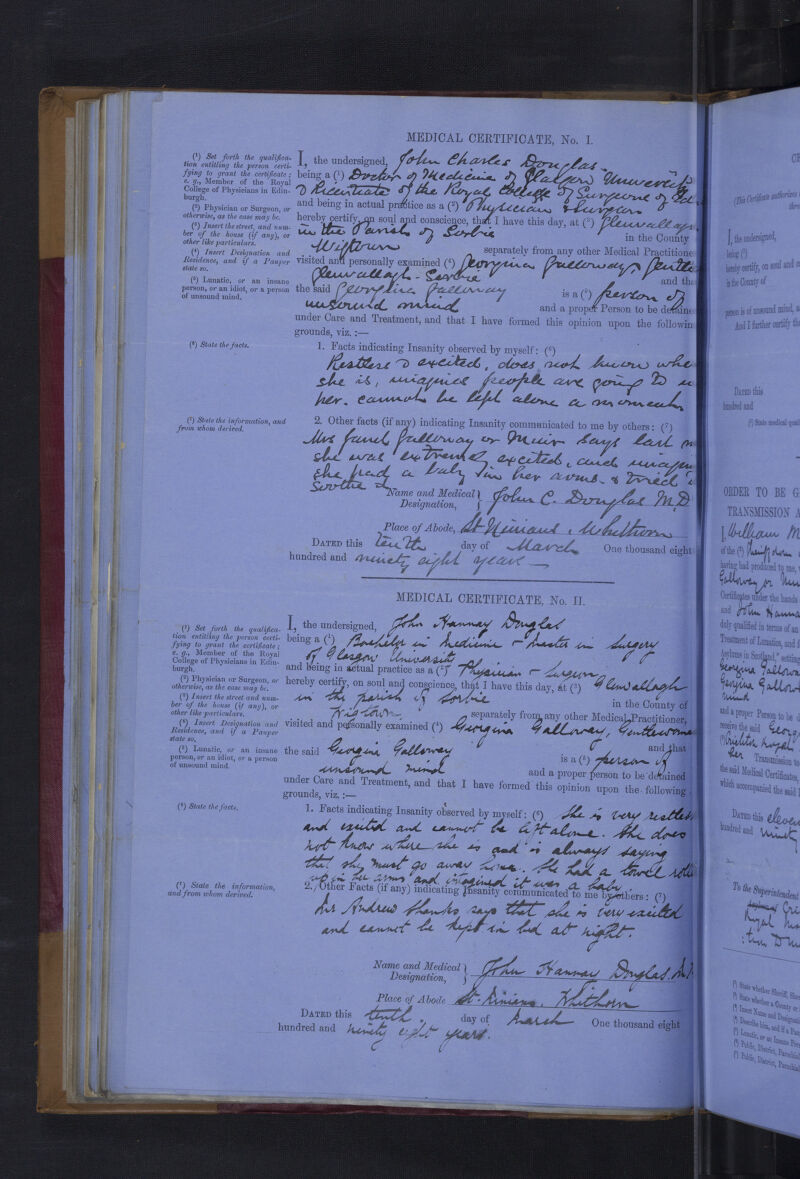 MEDICAL CERTIFICATE, No. I.
(¹) Set forth the qualifica-
tion entitling the person certi-
fying to grant the certificate;
e. g., Member of the Royal
College of Physicians in Edin-
burgh.
(²) Physician or Surgeon, or
otherwise, as the case may be.
(³) Insert the street, and num-
ber of the house (if any), or
other like particulars.
(⁴) Insert Designation and
Residence, and if a Pauper
state so.
(⁵) Lunatic, or an insane
person, or an idiot, or a person
of unsound mind.
I, the undersigned, John Charles Douglas
being a (¹) Doctor of Medicine of Glasgow University
& Licentiate of the Royal College of Surgeons of Ed
and being in actual practice as a (²) Physician & Surgeon
hereby certify, on soul and conscience, that I have this day, at (³) Glenvallagh
in the Parish of Sorbie in the County
Wigtown separately from any other Medical Practitioner
visited and personally examined (⁴) Georgina Galloway, Gentle
Glenvallagh - Sorbie and tha
the said Georgina Galloway is a (⁵) person of
unsound mind and a proper Person to be detaine
under Care and Treatment, and that I have formed this opinion upon the followin
grounds, viz. :—
(⁶) State the facts.
1. Facts indicating Insanity observed by myself: (⁶)
Restless & excited, does not know whe
she is, imagines people are going to
her. cannot be left alone a moment
(⁷) State the information, and
from whom derived.
2. Other facts (if any) indicating Insanity communicated to me by others: (⁷)
Mrs Janet Galloway or Muir says last
she was extremely excited, and imagin
she had a baby in her arms & tried
soothe it
Name and Medical Designation, John C. Douglas M.D
Place of Abode, St Ninians, Whithorn
DATED this tenth day of March One thousand eight
hundred and ninety eight years —
MEDICAL CERTIFICATE, No. II.
(¹) Set forth the qualifica-
tion entitling the person certi-
fying to grant the certificate;
e. g., Member of the Royal
College of Physicians in Edin-
burgh.
(²) Physician or Surgeon, or
otherwise, as the case may be.
(³) Insert the street and num-
ber of the house (if any), or
other like particulars.
(⁴) Insert Designation and
Residence, and if a Pauper
state so.
(⁵) Lunatic, or an insane
person, or an idiot, or a person
of unsound mind.
I, the undersigned, John Hannay Douglas
being a (¹) Bachelor in Medicine & Master in Surgery
of Glasgow University
and being in actual practice as a (²) Physician & Surgeon
hereby certify, on soul and conscience, that I have this day, at (³) Glenvallagh
in the parish of Sorbie in the County of
Wigtown separately from any other Medical Practitioner,
visited and personally examined (⁴) Georgina Galloway, Gentlewoman
and that
the said Georgina Galloway is a (⁵) person of
unsound mind and a proper person to be detained
under Care and Treatment, and that I have formed this opinion upon the following
grounds, viz. :—
(⁶) State the facts.
1. Facts indicating Insanity observed by myself: (⁶) She is very restless
and excited and cannot be left alone. She does
not know where she is and is always saying
that she must go away home. She had a towel rolled
up in her arms and imagined it was a baby.
(⁷) State the information,
and from whom derived.
2. Other Facts (if any) indicating Insanity communicated to me by others: (⁷)
Mr Andrew Shanks says that she is very excited
and cannot be kept in bed at night.
Name and Medical Designation, John Hannay Douglas. M.
Place of Abode St. Ninians. Whithorn
DATED this tenth. day of March One thousand eight
hundred and ninety eight years.
I, the undersigned,
being (¹)
hereby certify, on soul and
in the County of
person is of unsound mind, a
And I further certify tha
DATED this
hundred and
ORDER TO BE G
TRANSMISSION A
I, William M
of the (²)
having had produced to me,
Galloway or
Certificates under the hands
and John Hanna
duly qualified in terms of an
Treatment of Lunatics, and
Asylums in Scotland," setting
Georgina Gallowa
Georgina Gallow
mind
and a proper Person to be
receive the said Georg
Crichton Royal
Transmission to
the said Medical Certificates,
which accompanied the said
DATED this eleven
hundred and ninety
To the Superintendent
Royal